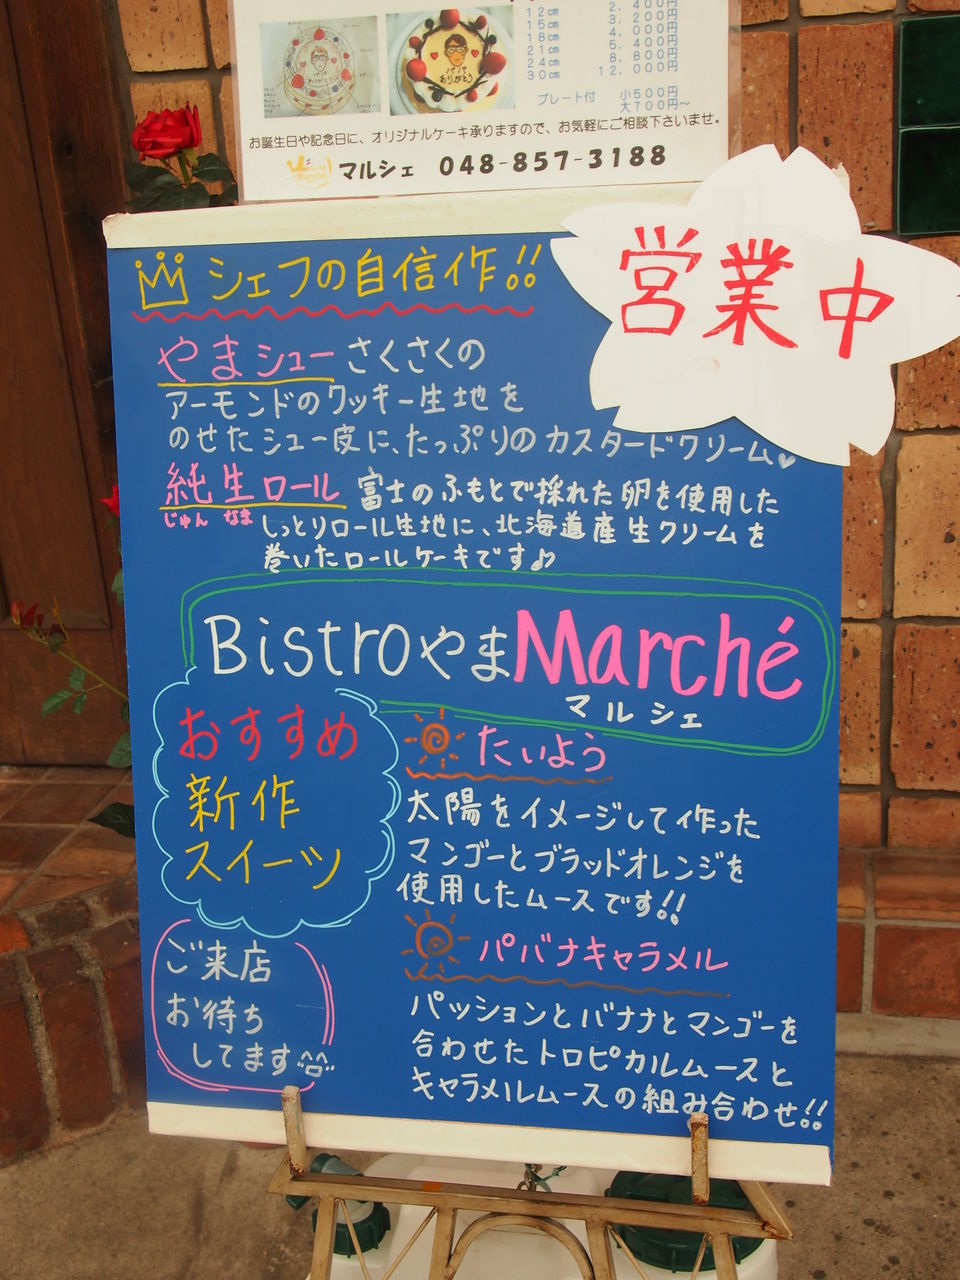 12cm 2,400円
15cm 3,200円
18cm 4,000円
21cm 5,400円
24cm 8,800円
30cm 12,000円
プレート付 小500円
大700円〜
パパ
ありがとう
お誕生日や記念日に、オリジナルケーキ承りますので、お気軽にご相談下さいませ。
Marché マルシェ 048-857-3188
営業中
シェフの自信作!!
やまシュー さくさくの
アーモンドのクッキー生地を
のせたシュー皮に、たっぷりのカスタードクリーム♡
純生ロール 富士のふもとで採れた卵を使用した
じゅん なま しっとりロール生地に、北海道産生クリームを
巻いたロールケーキです♪
BistroやまMarché
マルシェ
おすすめ
新作
スイーツ
たいよう
太陽をイメージして作った
マンゴーとブラッドオレンジを
使用したムースです!!
パバナキャラメル
パッションとバナナとマンゴーを
合わせたトロピカルムースと
キャラメルムースの組み合わせ!!
ご来店
お待ち
してます